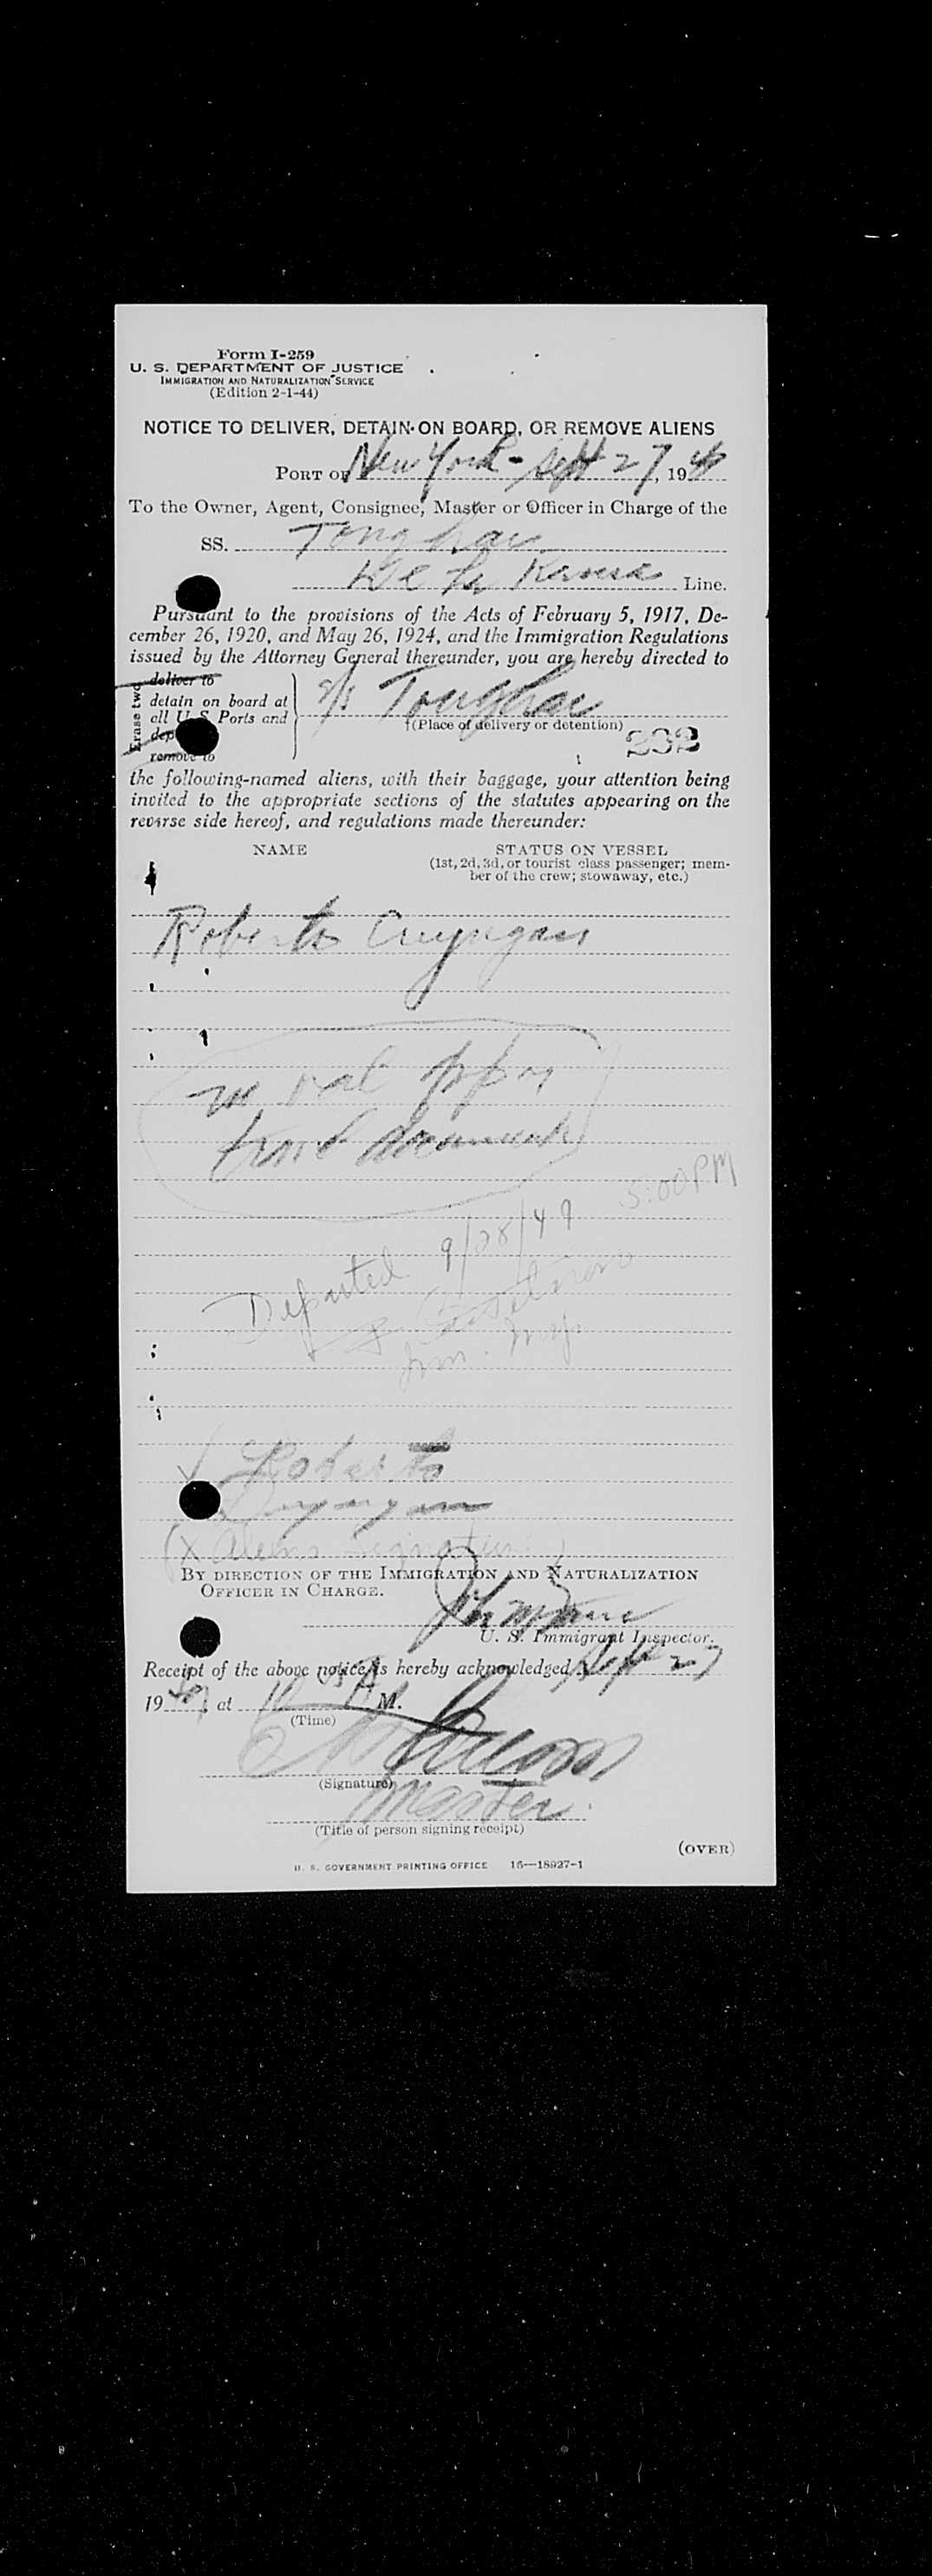 Form I-259
U. S. DEPARTMENT OF JUSTICE
IMMIGRATION AND NATURALIZATION SERVICE
(Edition 2-1-44)
NOTICE TO DELIVER, DETAIN ON BOARD, OR REMOVE ALIENS
PORT OF New York - Sept 27, 19
To the Owner, Agent, Consignee, Master or Officer in Charge of the
SS.
De La Line.
Pursuant to the provisions of the Acts of February 5, 1917, De-
cember 26, 1920, and May 26, 1924, and the Immigration Regulations
issued by the Attorney General thereunder, you are hereby directed to
Erase two
deliver to
detain on board at
all U S Ports and
dep
remove to
s/s
†(Place of delivery or detention)
232
the following-named aliens, with their baggage, your attention being
invited to the appropriate sections of the statutes appearing on the
reverse side hereof, and regulations made thereunder:
NAME STATUS ON VESSEL
(1st, 2d, 3d, or tourist class passenger; mem-
ber of the crew; stowaway, etc.)
Roberto
5:00 PM
Departed 9/28/49
Imm. Insp
Roberto
(X Aliens Signature)
BY DIRECTION OF THE IMMIGRATION AND NATURALIZATION
OFFICER IN CHARGE.
U. S. Immigrant Inspector.
Receipt of the above notice is hereby acknowledged Sept 27
19 , at M.
(Time)
(Signature)
Master
(Title of person signing receipt)
(OVER)
U. S. GOVERNMENT PRINTING OFFICE 16—18927-1